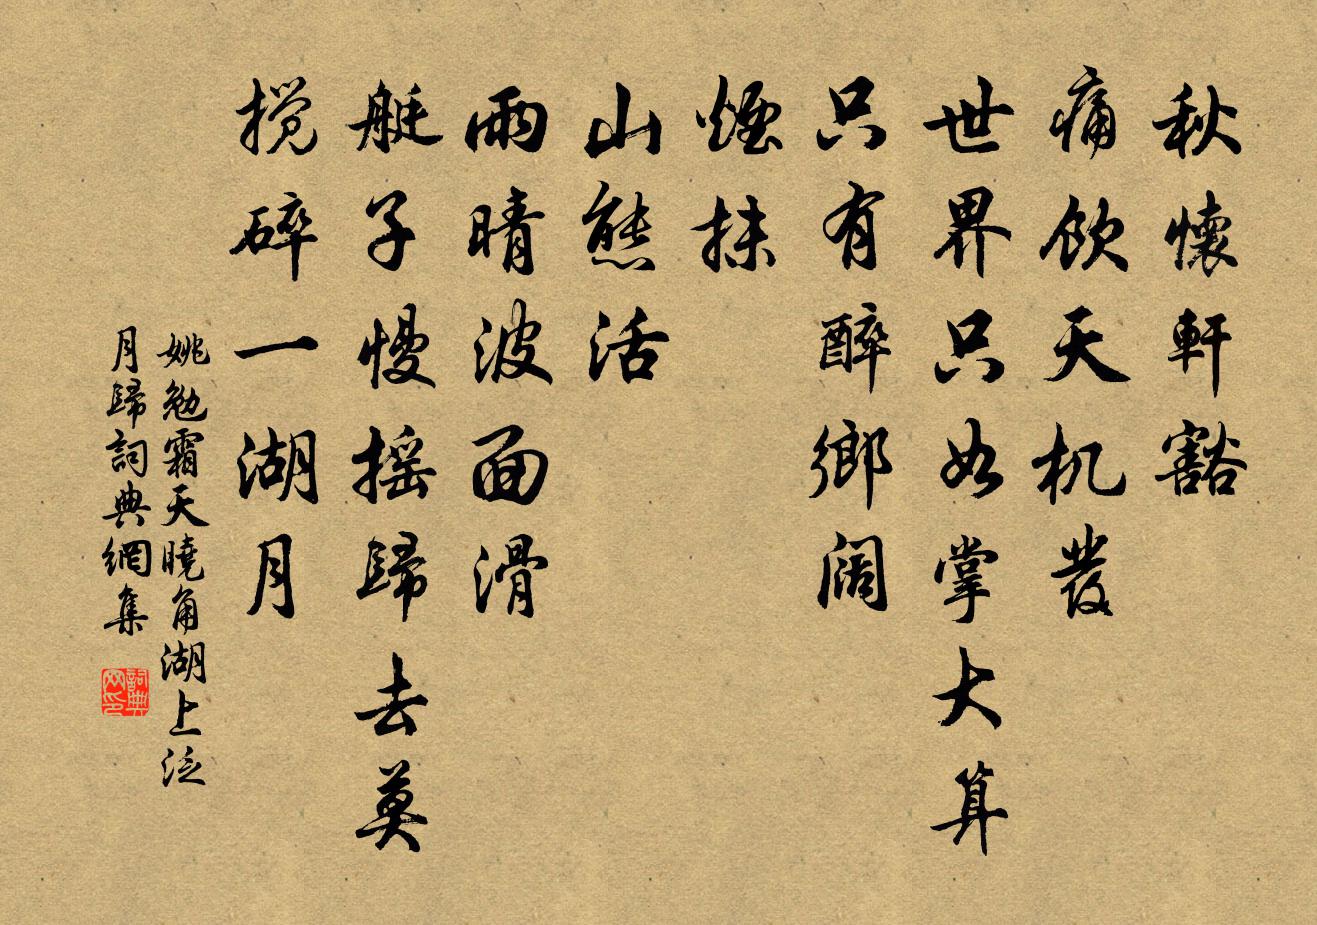 秋懷軒豁
痛飲天机發
世界只如掌大算
只有醉鄉闊
煙抹
山態活
雨晴波面滑
艇子慢摇歸去莫
攪碎一湖月
姚勉霜天曉角湖上泛
月歸詞典網集
詞典
网印